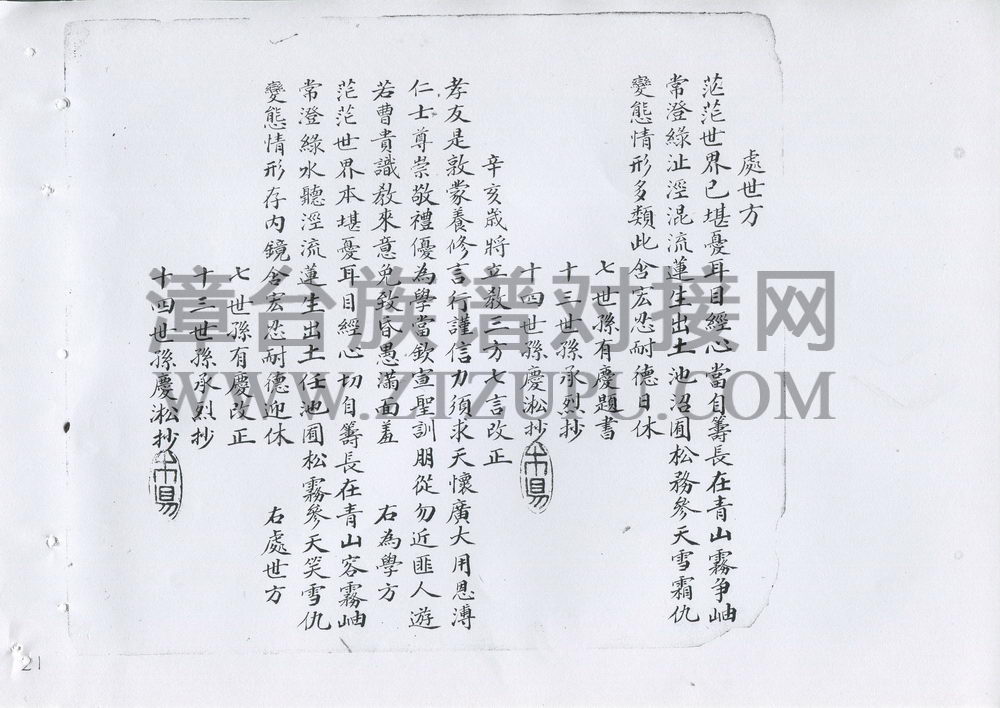 處世方
茫茫世界已堪憂耳目經心當自籌長在青山霧爭岫
常澄綠沚涇混流蓮生出土池沼囿松務參天雪霜仇
變態情形多類此含宏忍耐德日休
七世孫有慶題書
十三世孫承烈抄
十四世孫慶淞抄
辛亥歲將立教三方七言改正
孝友是敦蒙養修言行謹信力須求天懷廣大用恩溥
仁士尊崇敬禮優為學當欽宣聖訓朋從勿近匪人遊
若曹貴識教來意免致昏愚滿面羞 右為學方
茫茫世界本堪憂耳目經心切自籌長在青山容霧岫
常澄綠水聽涇流蓮生出土任池囿松霧參天笑雪仇
變態情形存內鏡含宏忍耐德迎休 右處世方
七世孫有慶改正
十三世孫承烈抄
十四世孫慶淞抄
漳台族谱对接网
WWW.ZTZUPU.COM
21